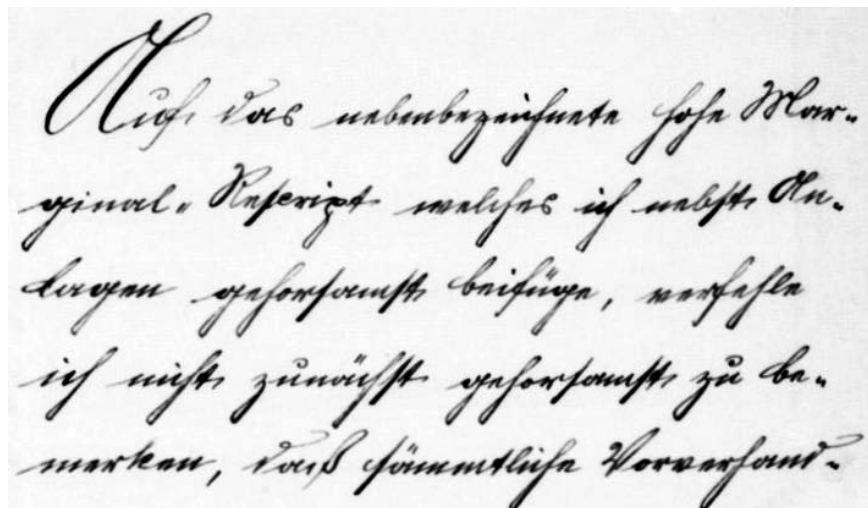 Auf das nebenbezeichnete hohe Mar-
ginal-Rescript welches ich nebst An-
lagen gehorsamst beifüge, verfehle
ich nicht zunächst gehorsamst zu be-
merken, daß sämmtliche Vorverhand-